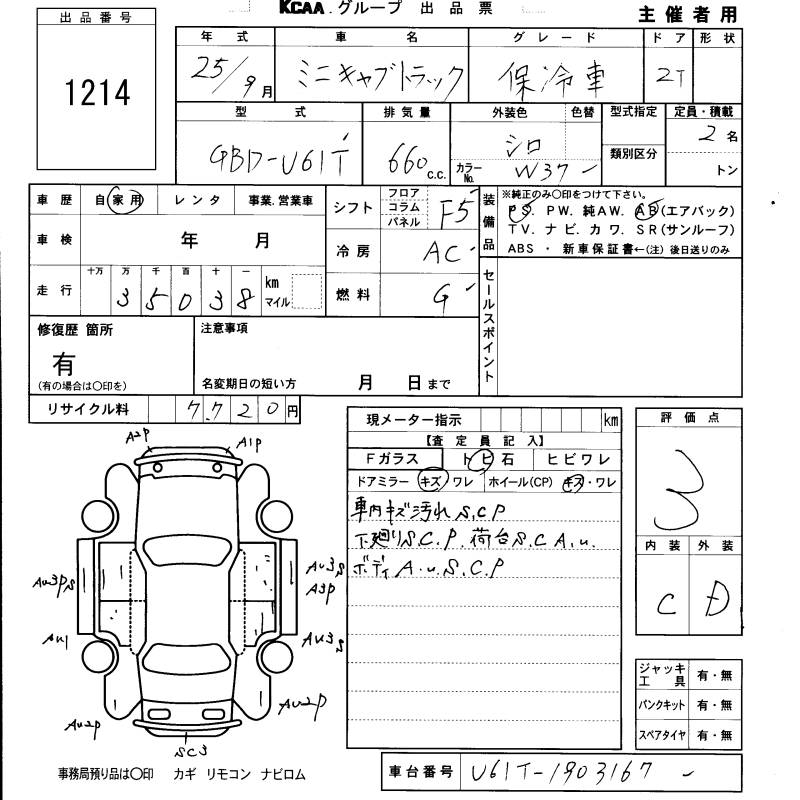 KCAA.グループ 出品票
主催者用
出品番号
1214
年式 車名 グレード ドア 形状
25/9月 ミニキャブトラック 保冷車 2T
型式 排気量 外装色 色替 型式指定 定員・積載
GBD-U61T 660 c.c. シロ 類別区分 2名
カラーNo. W37 トン
車歴 自家用 レンタ 事業.営業車
車検 年 月
走行 十万 万 千 百 十 一
35038 km マイル
シフト フロア コラム パネル F5
冷房 AC
燃料 G
装備品
※純正のみ○印をつけて下さい。
PS. PW. 純AW. AB(エアバック)
TV. ナビ. カワ. SR(サンルーフ)
ABS ・ 新車保証書←(注) 後日送りのみ
セールスポイント
修復歴 箇所
有
(有の場合は○印を)
注意事項
名変期日の短い方 月 日まで
リサイクル料 7,720円
現メーター指示 km
【査定員記入】
Fガラス トビ石 ヒビワレ
ドアミラー キズ・ワレ ホイール(CP) キズ・ワレ
車内キズ汚れS.C.P
下廻りS.C.P. 荷台S.C.A.u.
ボディA.u.S.C.P
評価点
3
内装 外装
C D
ジャッキ工具 有・無
パンクキット 有・無
スペアタイヤ 有・無
A2P A1P
Au3Ps Au3s
A3P
Au1 Au3s
Au2P Au2P
SC3
事務局預り品は○印 カギ リモコン ナビロム
車台番号 U61T-1903167